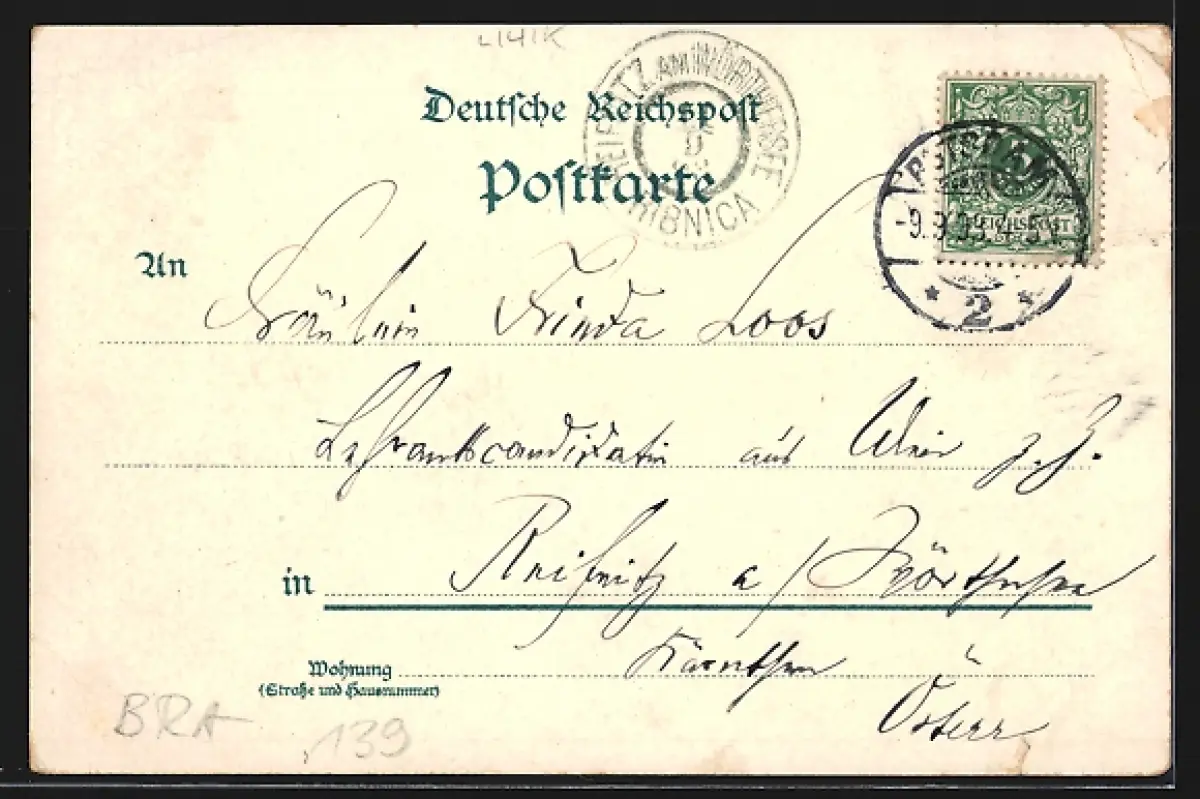 Deutsche Reichspost
Postkarte
REIFNITZ AM WÖRTHERSEE
RIBNICA
POTSDAM
-9.9.99.
* 2 *
REICHSPOST
An
Fräulein Frieda Loos
Lehramtscandidatin aus Wien z. Z.
in Reifnitz a/Wörthersee
Kärnthen
Wohnung
(Straße und Hausnummer)
Österr
BRA
139